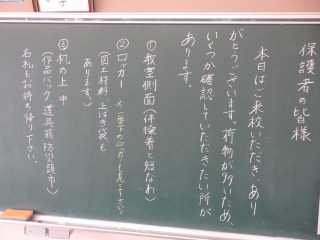 保護者の皆様
本日はご来校いただき、あり
がとうございます。荷物が多いため、
いくつか確認していただきたい所が
あります。
①教室側面（体操着と短なわ）
②ロッカー ※廊下のロッカーも見て下さい!
（図工材料、上ばき袋も
あります。）
③机の上、中
（作品バック、道具箱、防災頭巾）
名札もお持ち帰り下さい。